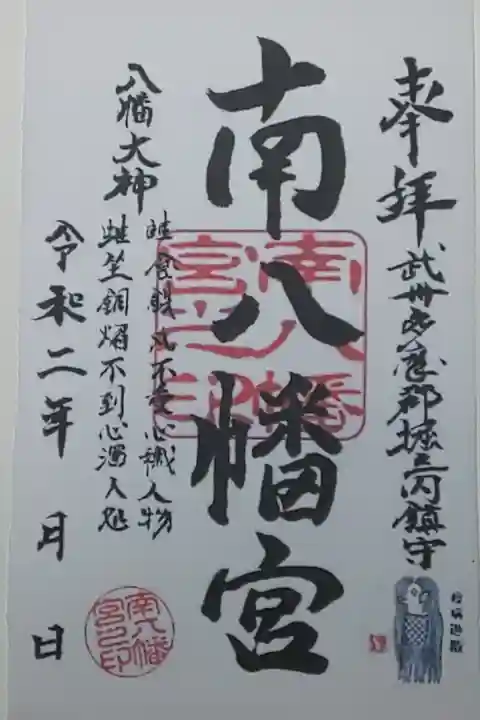 奉拝
武州多摩郡堀之内鎮守
疫病退散
南八幡宮
南八幡宮之印
八幡大神
雖食鉄丸不受心穢人物
雖坐銅焔不到心濁人処
令和二年 月 日
南八幡宮之印